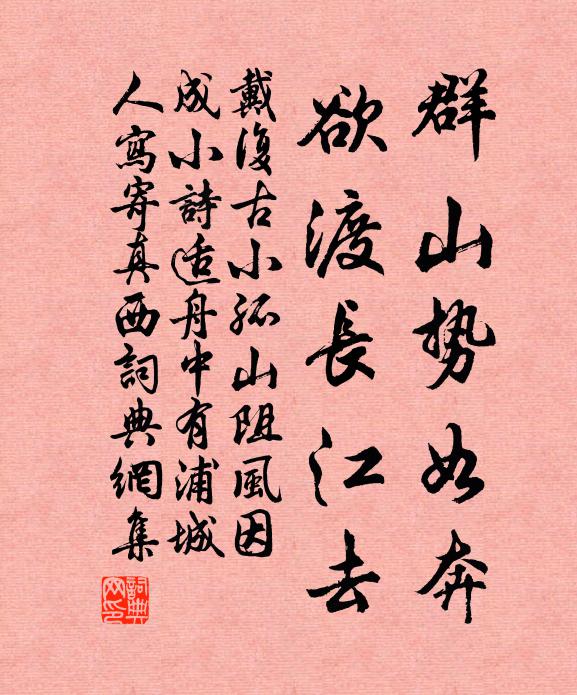 群山势如奔
欲渡長江去
戴復古小孤山阻風因
成小詩适舟中有浦城
人寫寄真西詞典網集
詞典
网印